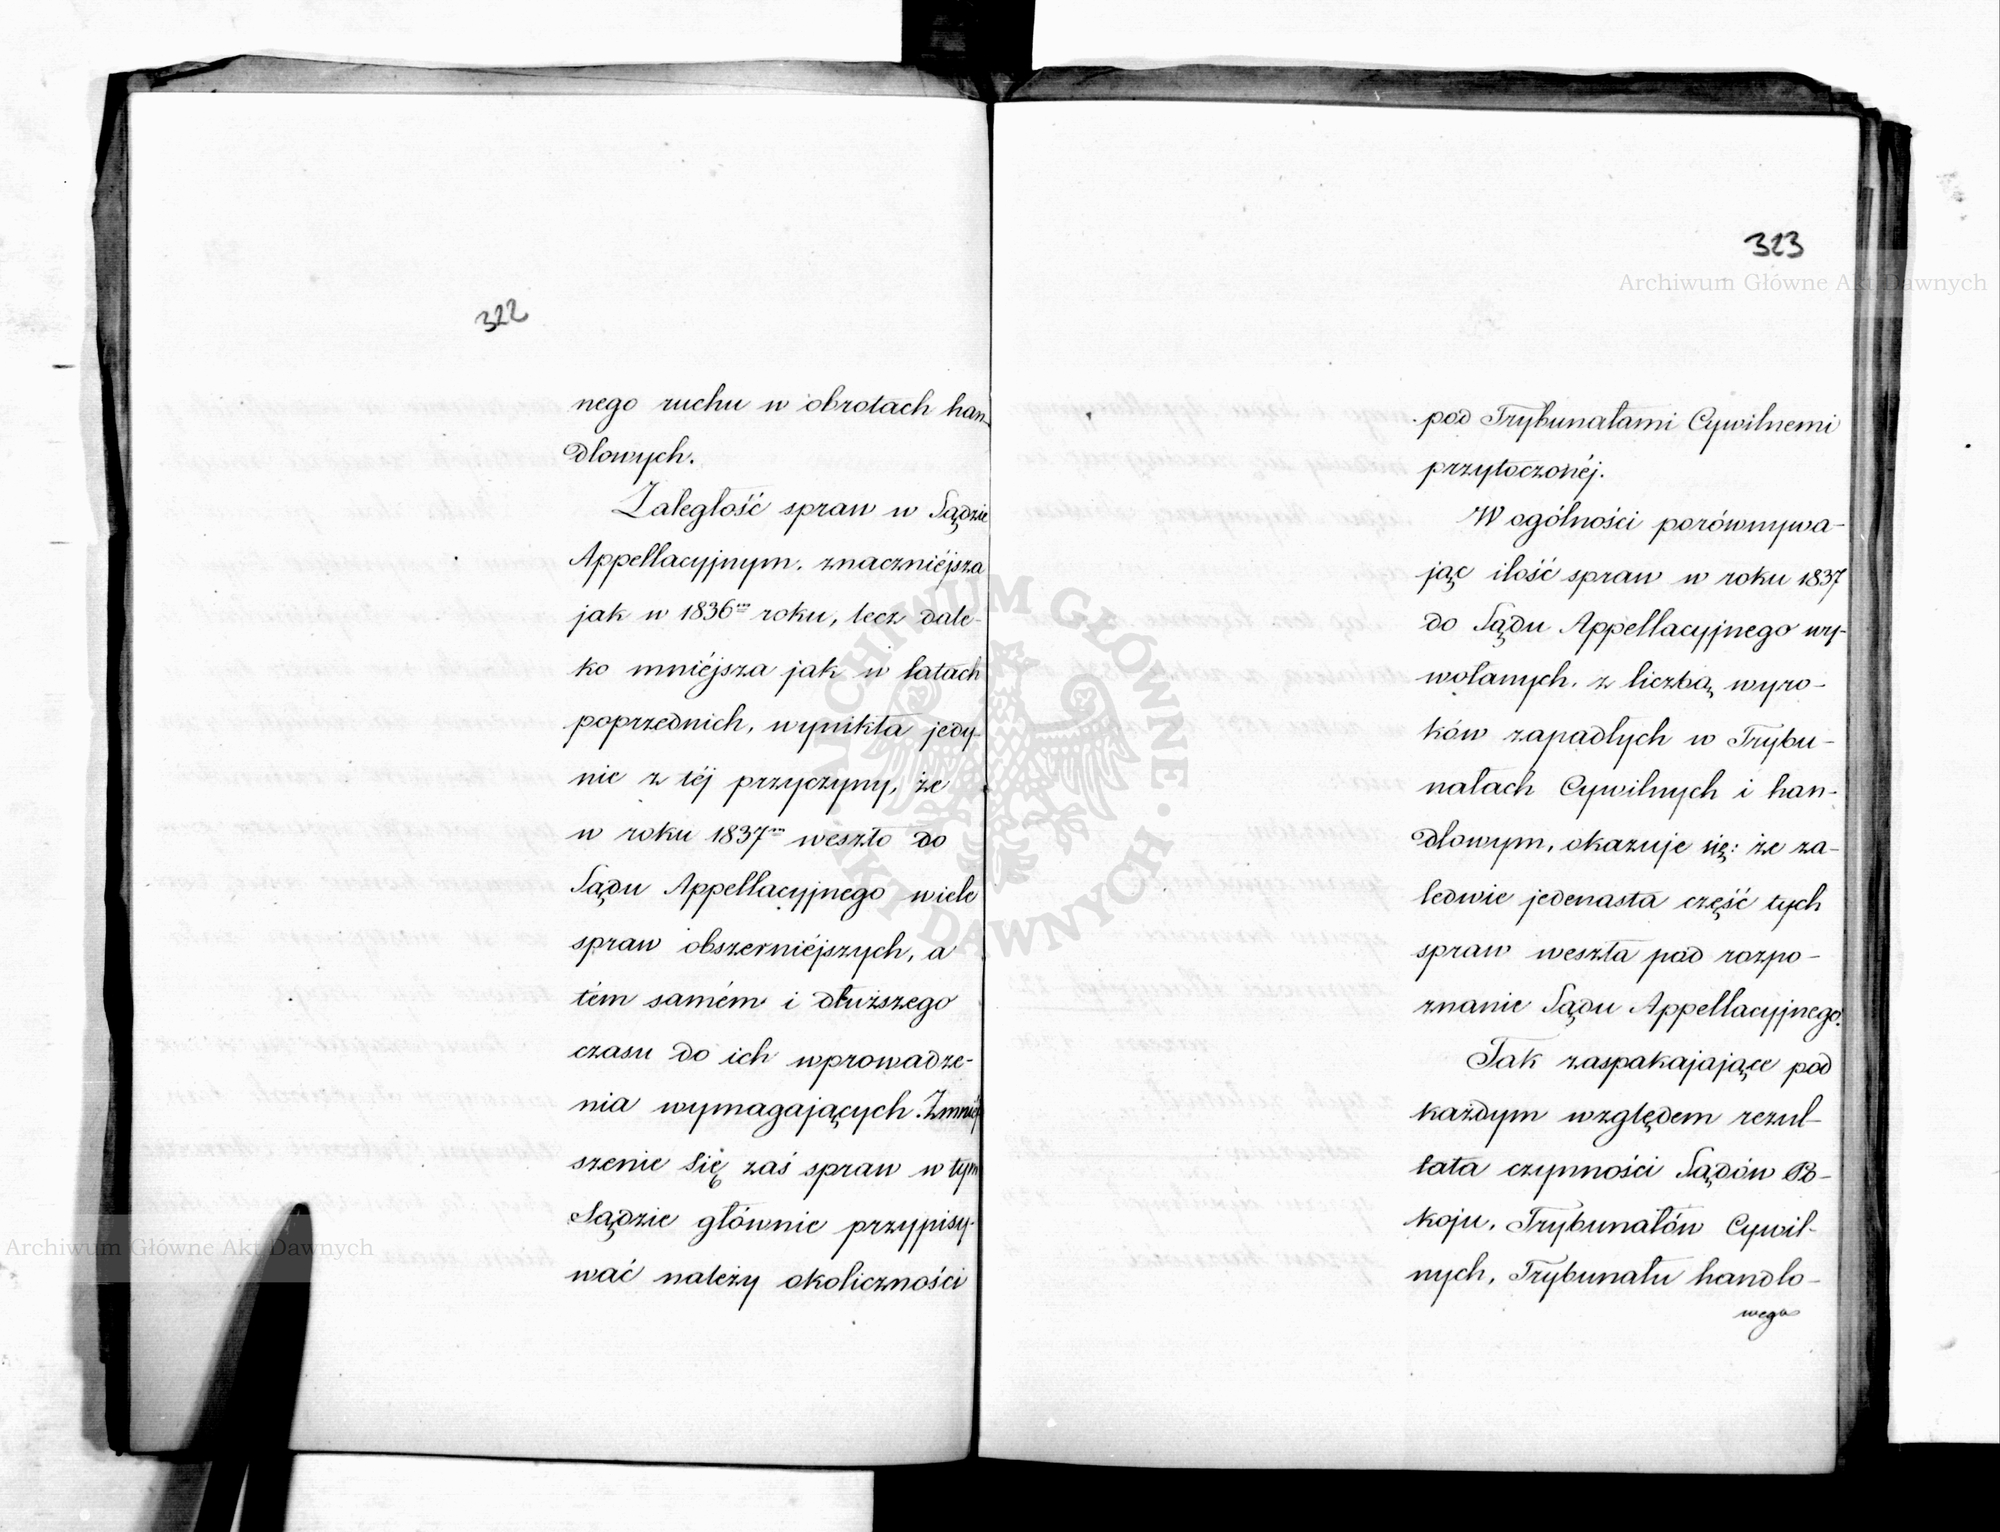 322
nego ruchu w obrotach han-
dlowych.
Zaległość spraw w Sądzie
Appellacyjnym. znaczniéjsza
jak w 1836m roku, lecz dale-
ko mniéjsza jak w latach
poprzednich, wynikła jedy-
nie z téj przyczyny, że
w roku 1837m weszło do
Sądu Appellacyjnego wiele
spraw obszerniéjszych, a
tém samém i dłuższego
czasu do ich wprowadze-
nia wymagających. Zmniéj
szenie się zaś spraw w tym
Sądzie głównie przypisy-
wać należy okoliczności
323
pod Trybunałami Cywilnemi
przytoczonéj.
W ogólności porównywa-
jąc ilość spraw w roku 1837
do Sądu Appellacyjnego wy-
wołanych. z liczbą wyro-
ków zapadłych w Trybu-
nałach Cywilnych i han-
dlowym, okazuje się: że za-
ledwie jedenasta część tych
spraw weszła pod rozpo-
znanie Sądu Appellacyjnego.
Tak zaspakajające pod
każdym względem rezul-
tata czynności Sądów Po-
koju, Trybunałów Cywil-
nych, Trybunału handlo-
wego
Archiwum Główne Akt Dawnych
Archiwum Główne Akt Dawnych
ARCHIWUM GŁÓWNE AKT DAWNYCH